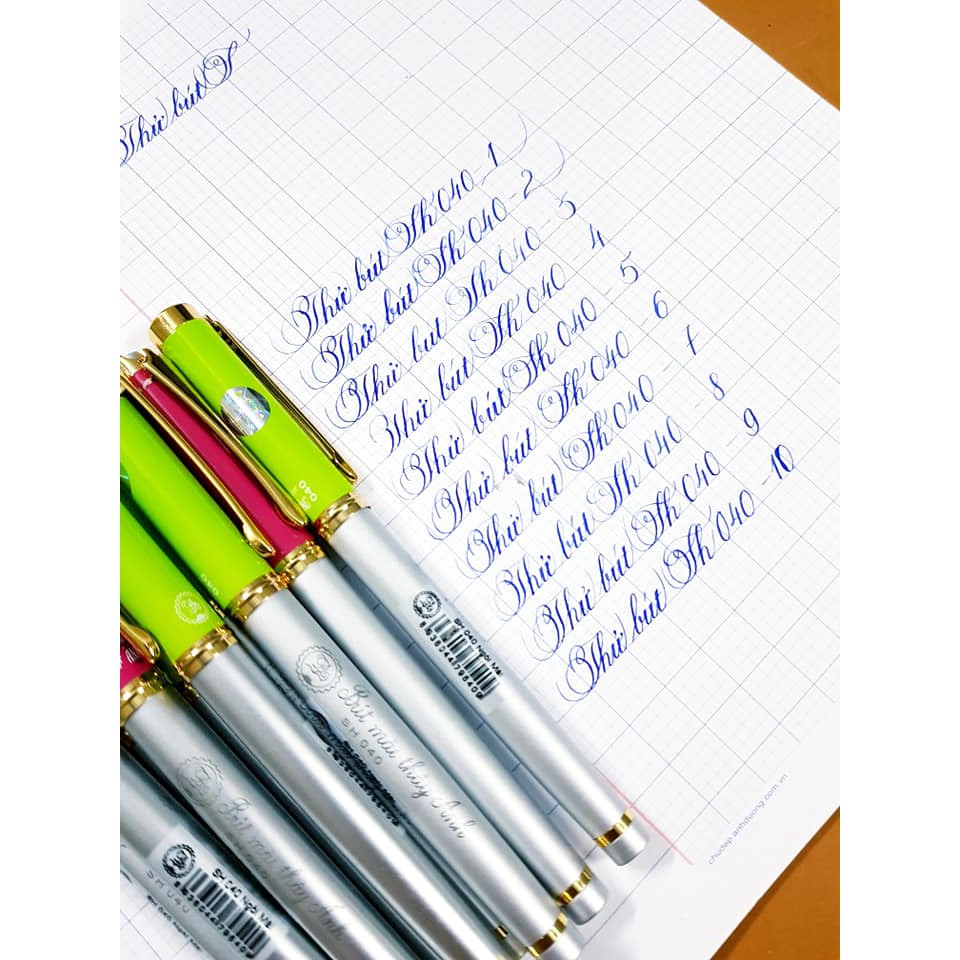 Thử bút S
Thử bút Sh 040 - 1
Thử bút Sh 040 - 2
Thử bút Sh 040 - 3
Thử bút Sh 040 - 4
Thử bút Sh 040 - 5
Thử bút Sh 040 - 6
Thử bút Sh 040 - 7
Thử bút Sh 040 - 8
Thử bút Sh 040 - 9
Thử bút Sh 040 - 10
040
040
SH 040 Ngòi Mài
Bút mài thầy Ánh
SH 040
Bút mài thầy Ánh
SH 040 Ngòi Mài
SH 040
chudep.anhduong.com.vn